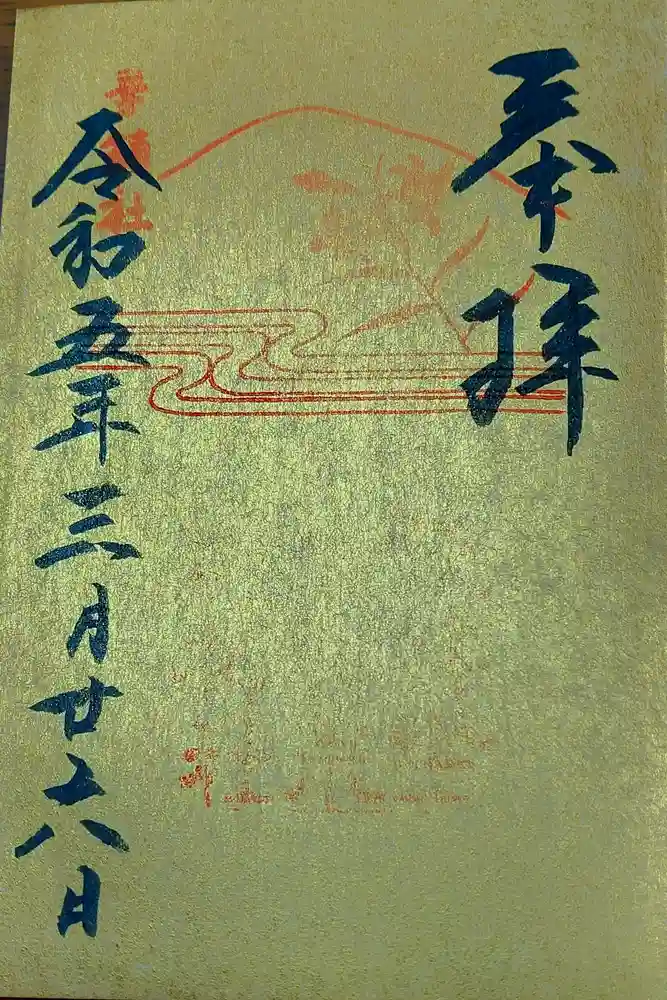 奉拝
令和五年三月廿六日